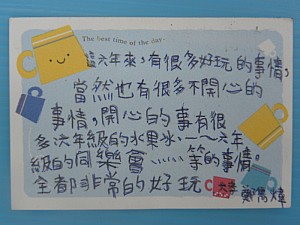 The best time of the day.
這六年來,有很多好玩的事情,
當然也有很多不開心的
事情,開心的事有很
多:六年級的水果冰……六年
級的同樂會……等的事情。
全都非常的好玩